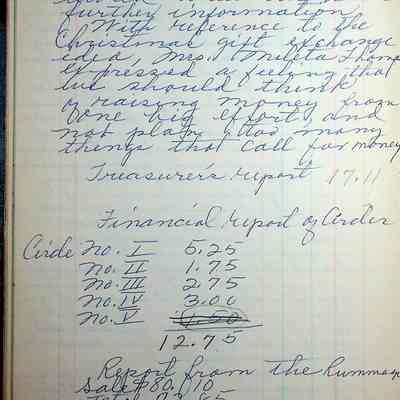 further information.
With reference to the
Christmas gift exchange
idea, Mrs. Mileta Thomp
expressed a feeling that
we should think
of raising money from
one big effort and
not plan too many
things that call for money
Treasurer's report 17.11
Financial report of Circles
Circle No. I 5.25
No. II 1.75
No. III 2.75
No. IV 3.00
No. V
12.75
Report from the Rummage
Sale $80.10